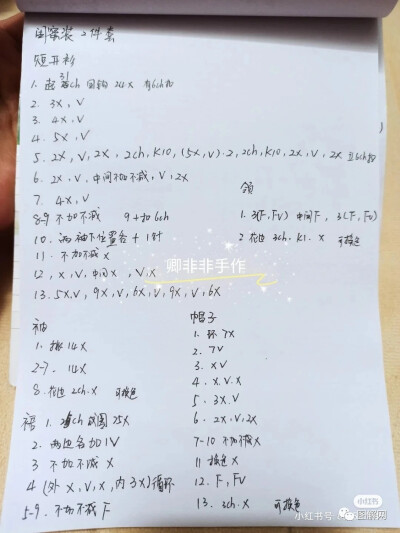 闺蜜装 2件套
短开衫
1. 起31ch 回钩 24X 有6ch扣
2. 3X,V
3. 4X,V
4. 5X,V
5. 2X,V,2X,2ch,K10,(5X,V)·2,2ch,K10,2X,V,2X 且6ch扣
6. 2X,V,中间不加不减,V,2X
7. 4X,V
8-9 不加不减 9+扣6ch
10. 两袖下位置各+1针
11. 不加不减X
12, X,V,中间X,V,X
13. 5X,V,9X,V,6X,V,9X,V,6X
领
1. 3(F,FV)中间F,3(F,FV)
2. 花边 3ch.K1.X 可换色
卿非非手作
袖
1. 挑14X
2-7. 14X
8. 花边 2ch.X 可换色
帽子
1. 环7X
2. 7V
3. XV
4. X.V.X
5. 3X.V
6. 2X.V.2X
7-10 不加不减X
11 换色X
12. F,FV
13. 3ch.X 可换色
1. ch成圈 25X
2. 两边各加1V
3 不加不减X
4 (外X,V,X,内3X)循环
5-9. 不加不减F
小红书
小红书号
图解网